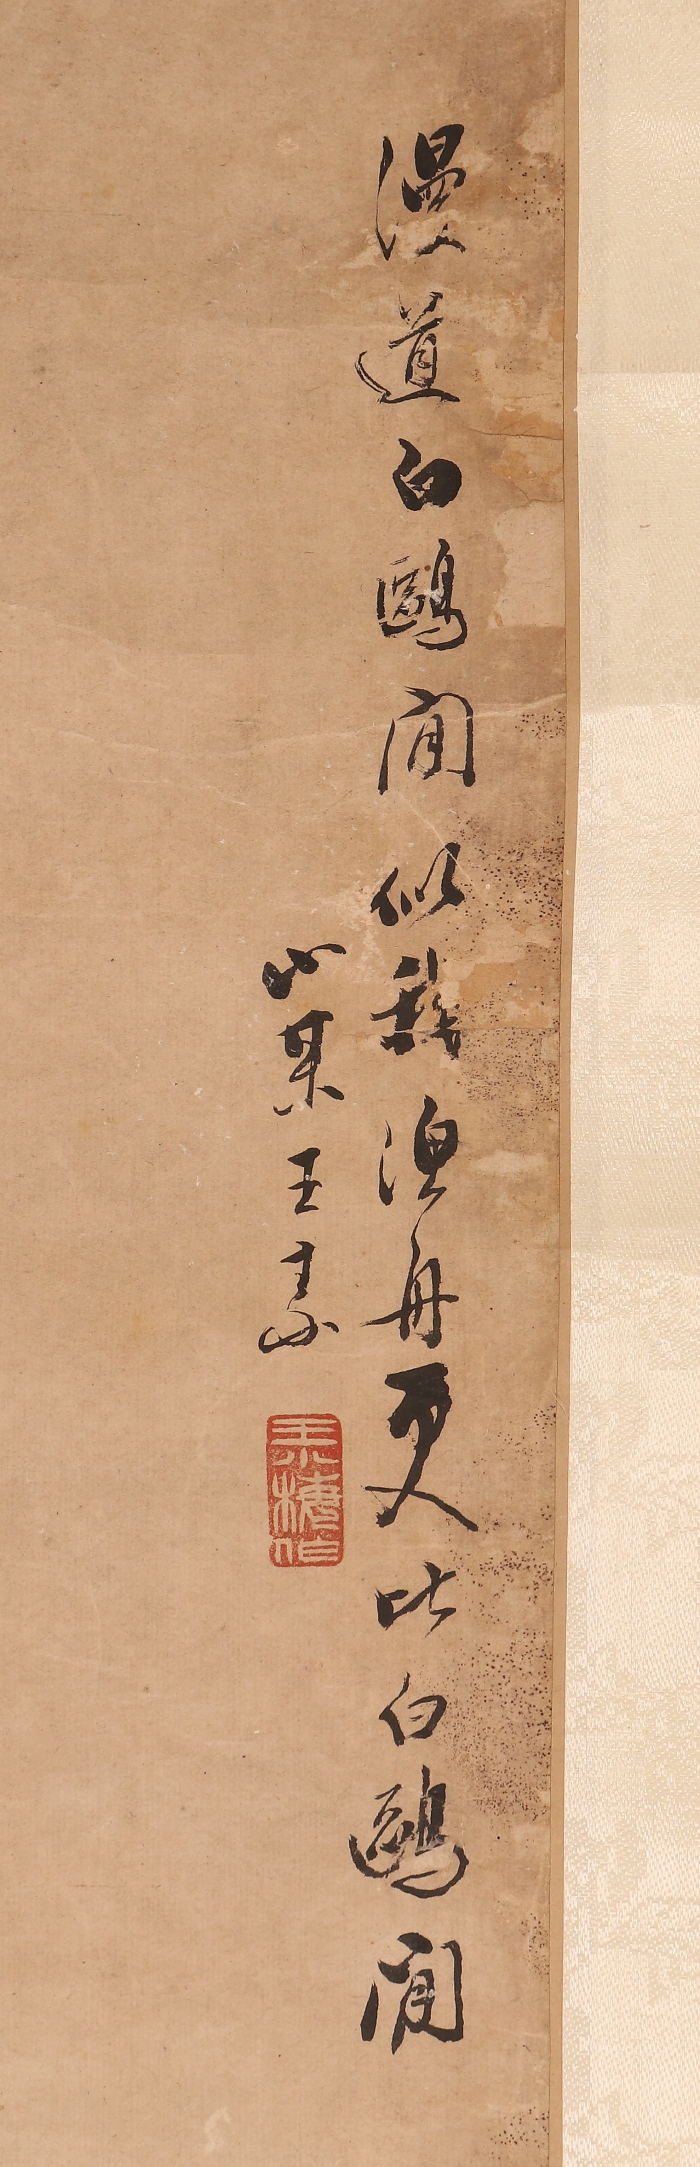 漫道白鷗閒似我漁舟更比白鷗閒
小某王素
王小梅